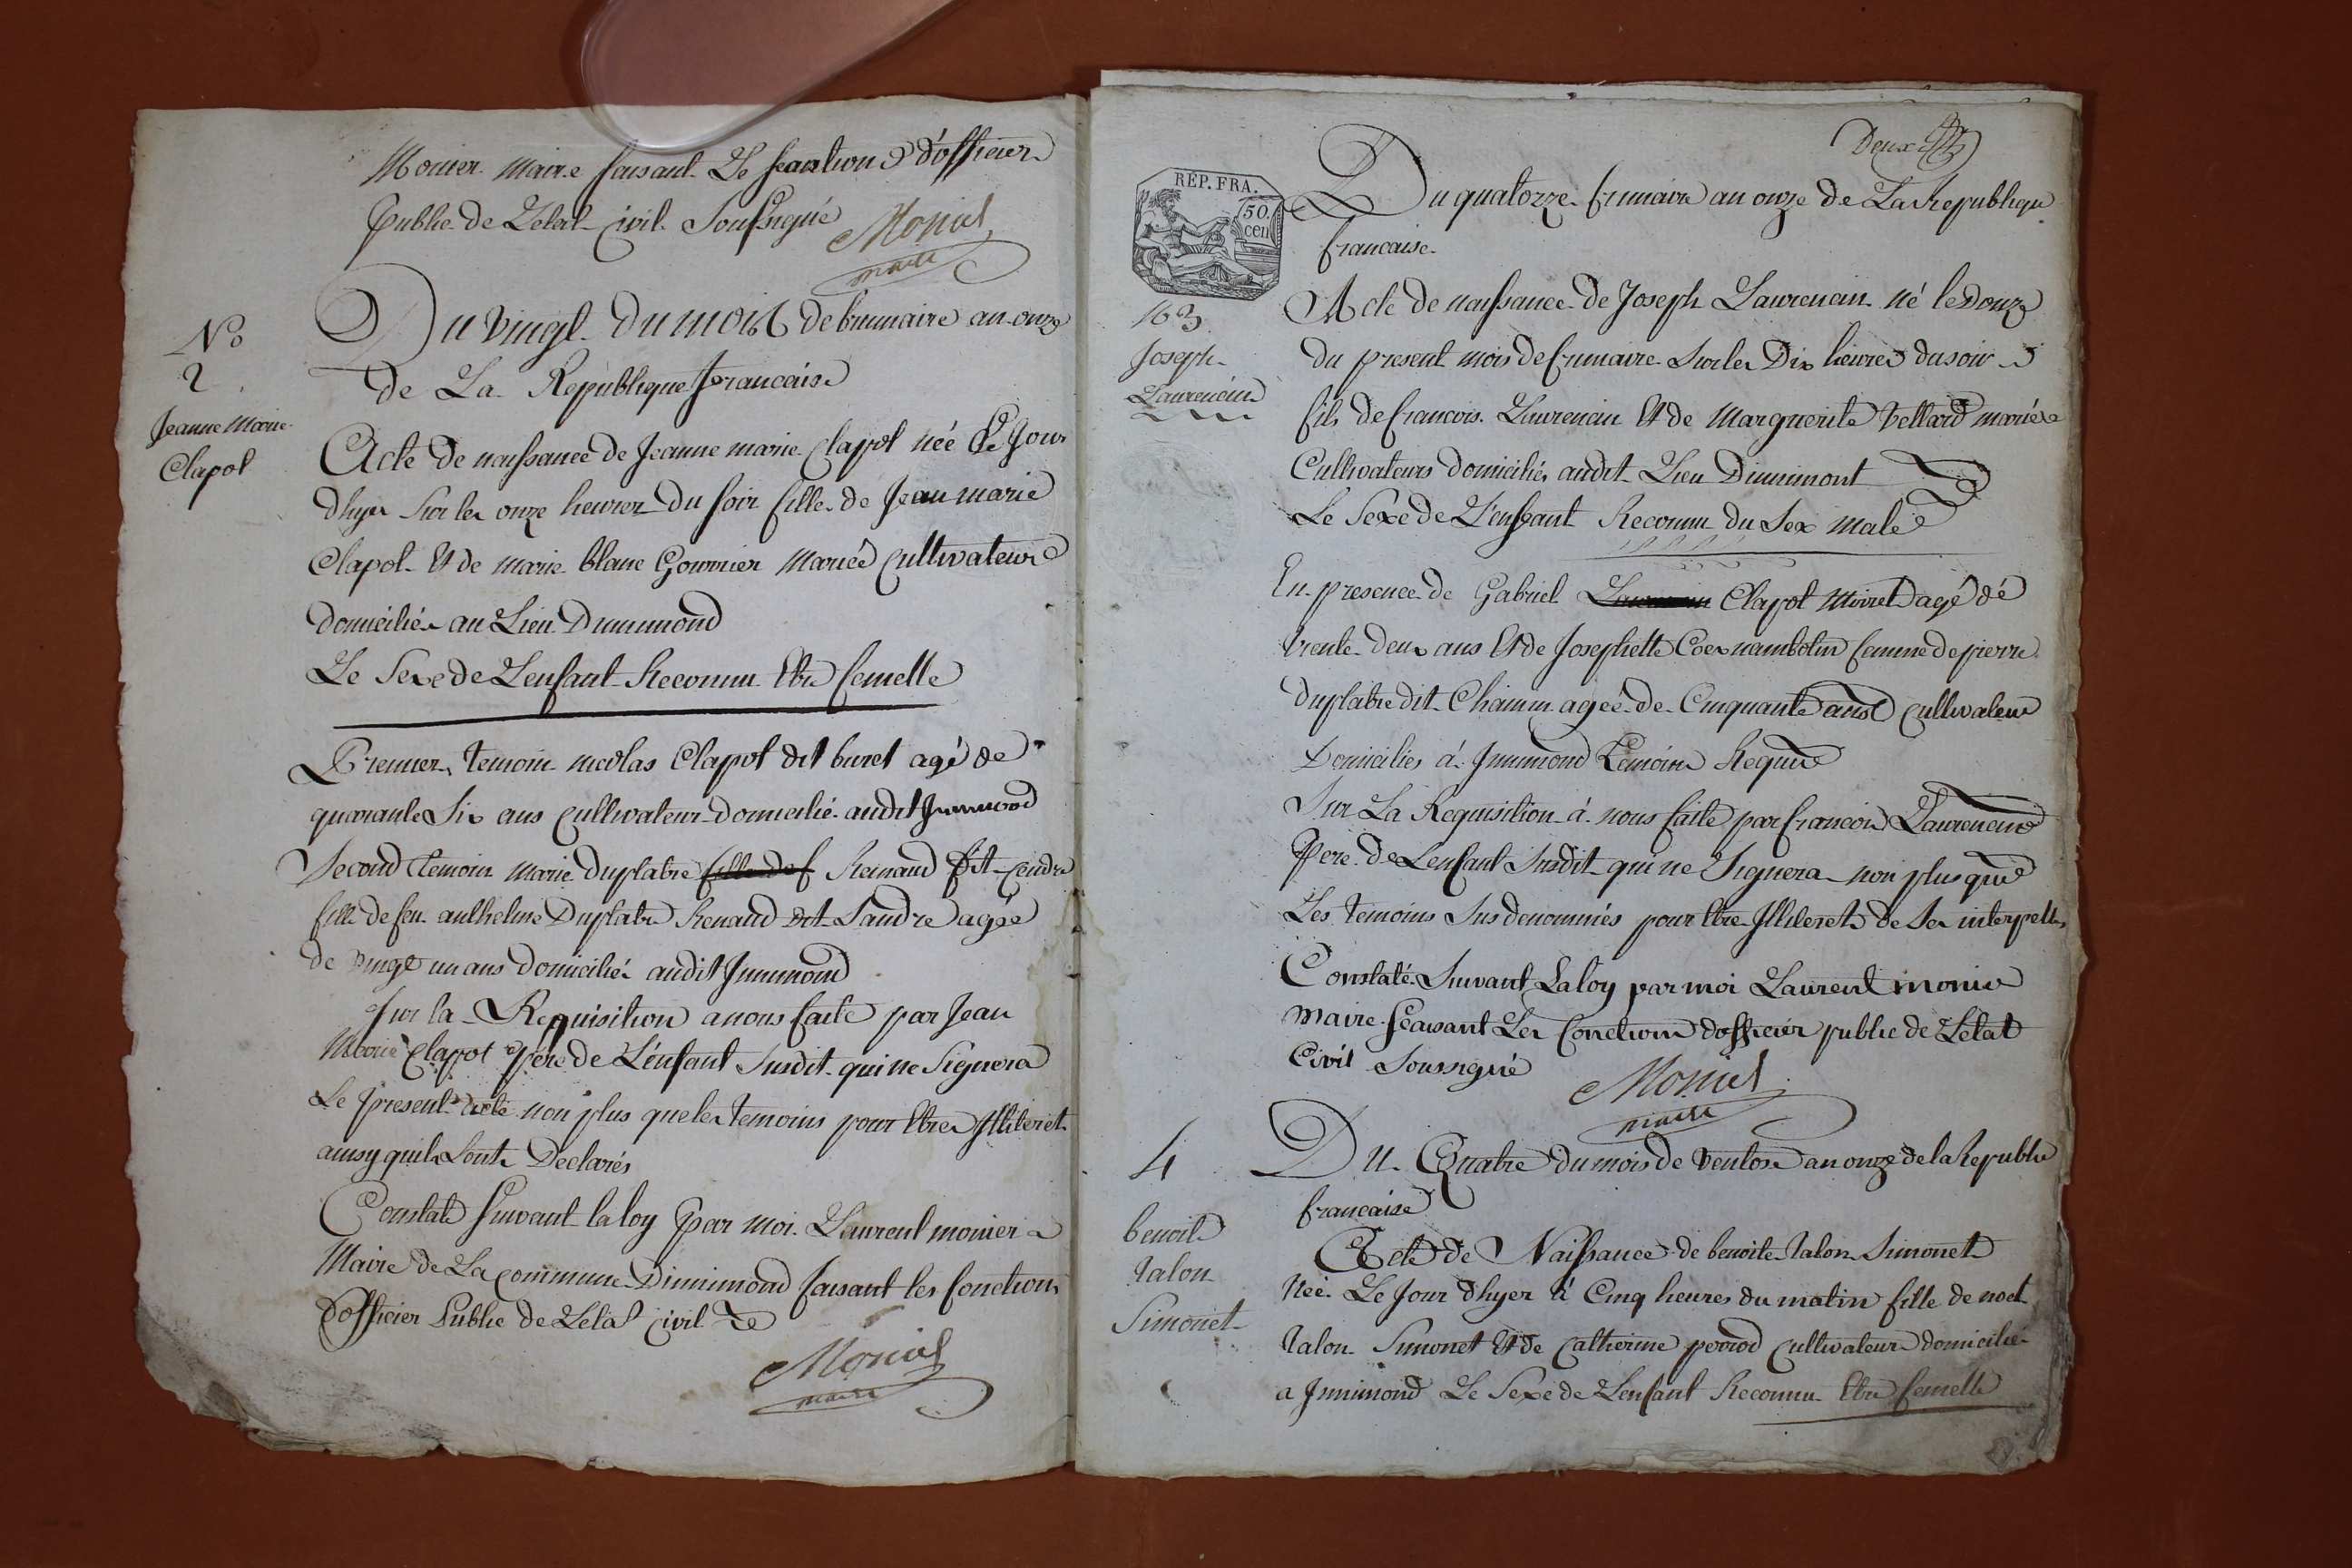 Monier maire faisant Le fonctions d'officier
Public de Letat Civil Soussigné
Monier
maire
No
2
Jeanne Marie
Clapot
Du vingt du mois de brumaire an onze
de La Republique francaise
Acte de naissance de Jeanne marie Clapot née Le Jour
dhyer Sur les onze heures du soir fille de Jean marie
Clapot Et de marie blanc Gourrier mariés Cultivateurs
domiciliés au Lieu Dinnimond
Le Sexe de Lenfant Reconnu Etre femelle
Premier temoin nicolas Clapot dit buret agé de
quarante Six ans Cultivateur domicilié audit Innimond
Second temoin marie Duplatre Renaud dit
fille de feu anthelme Duplatre Renaud dit Sandre agée
de vingt un ans domicilié audit Innimond
Sur la Requisition a nous faite par Jean
Marie Clapot père de L'enfant Susdit qui ne Signera
Le present acte non plus que les temoins pour Etre Illiteret
ainsy quils Sont Declarés
Constaté Suivant la loy par moi Laurent monier
Maire de La commune Dinnimond faisant les fonctions
Dofficier Public de Letat Civil
Monier
maire
Deux
REP. FRA.
50.
cen
Du quatorze frimaire an onze de La Republique
francaise
103
Joseph
Laurencin
Acte de naissance de Joseph Laurencin né le douze
du present mois de frimaire Sur les Dix heures du soir
fils de francois Laurencin Et de Marguerite Vettard mariés
Cultivateurs domiciliés audit Lieu Dinnimont
Le Sexe de L'enfeant Reconnu du Sex male
En presence de Gabriel Clapot Moiret agé de
trente deux ans Et de Josephette femme de pierre
Duplatre dit agée de Cinquante ans Cultivateur
Domiciliés á Innimond temoins Requis
Sur La Requisition á nous faite par francois Laurencin
Pere de Lenfant Susdit qui ne Signera non plus que
Les temoins Sus denommés pour Etre Illiterets de Se interpellés
Constaté Suivant La loy par moi Laurent monier
maire feaisant Les fonctions dofficier public de Letat
Civil Soussigné
Monier
maire
4
benoite
Talon
Simonet
Du Quatre du mois de ventose an onze de la Republi
francaise
Acte de Naissance de benoite Talon Simonet
Née Le Jour dhyer á Cinq heures du matin fille de noel
Talon Simonet Et de Catherine perrod Cultivateurs domicilié
a Innimond Le Sexe de Lenfant Reconnu Etre femelle